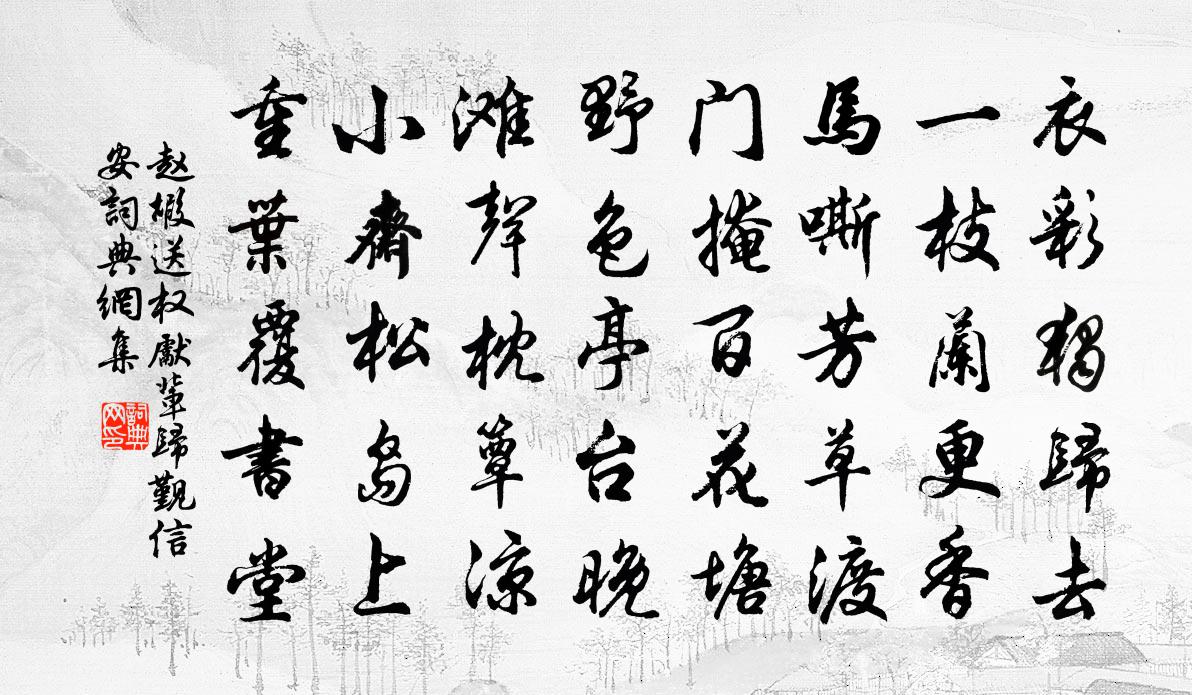 衣彩獨歸去
一枝蘭更香
馬嘶芳草渡
門掩百花塘
野色亭台晚
滩聲枕簟凉
小齋松島上
重葉覆書堂
赵嘏送权獻軰歸觐信
安詞典網集
詞典
网印